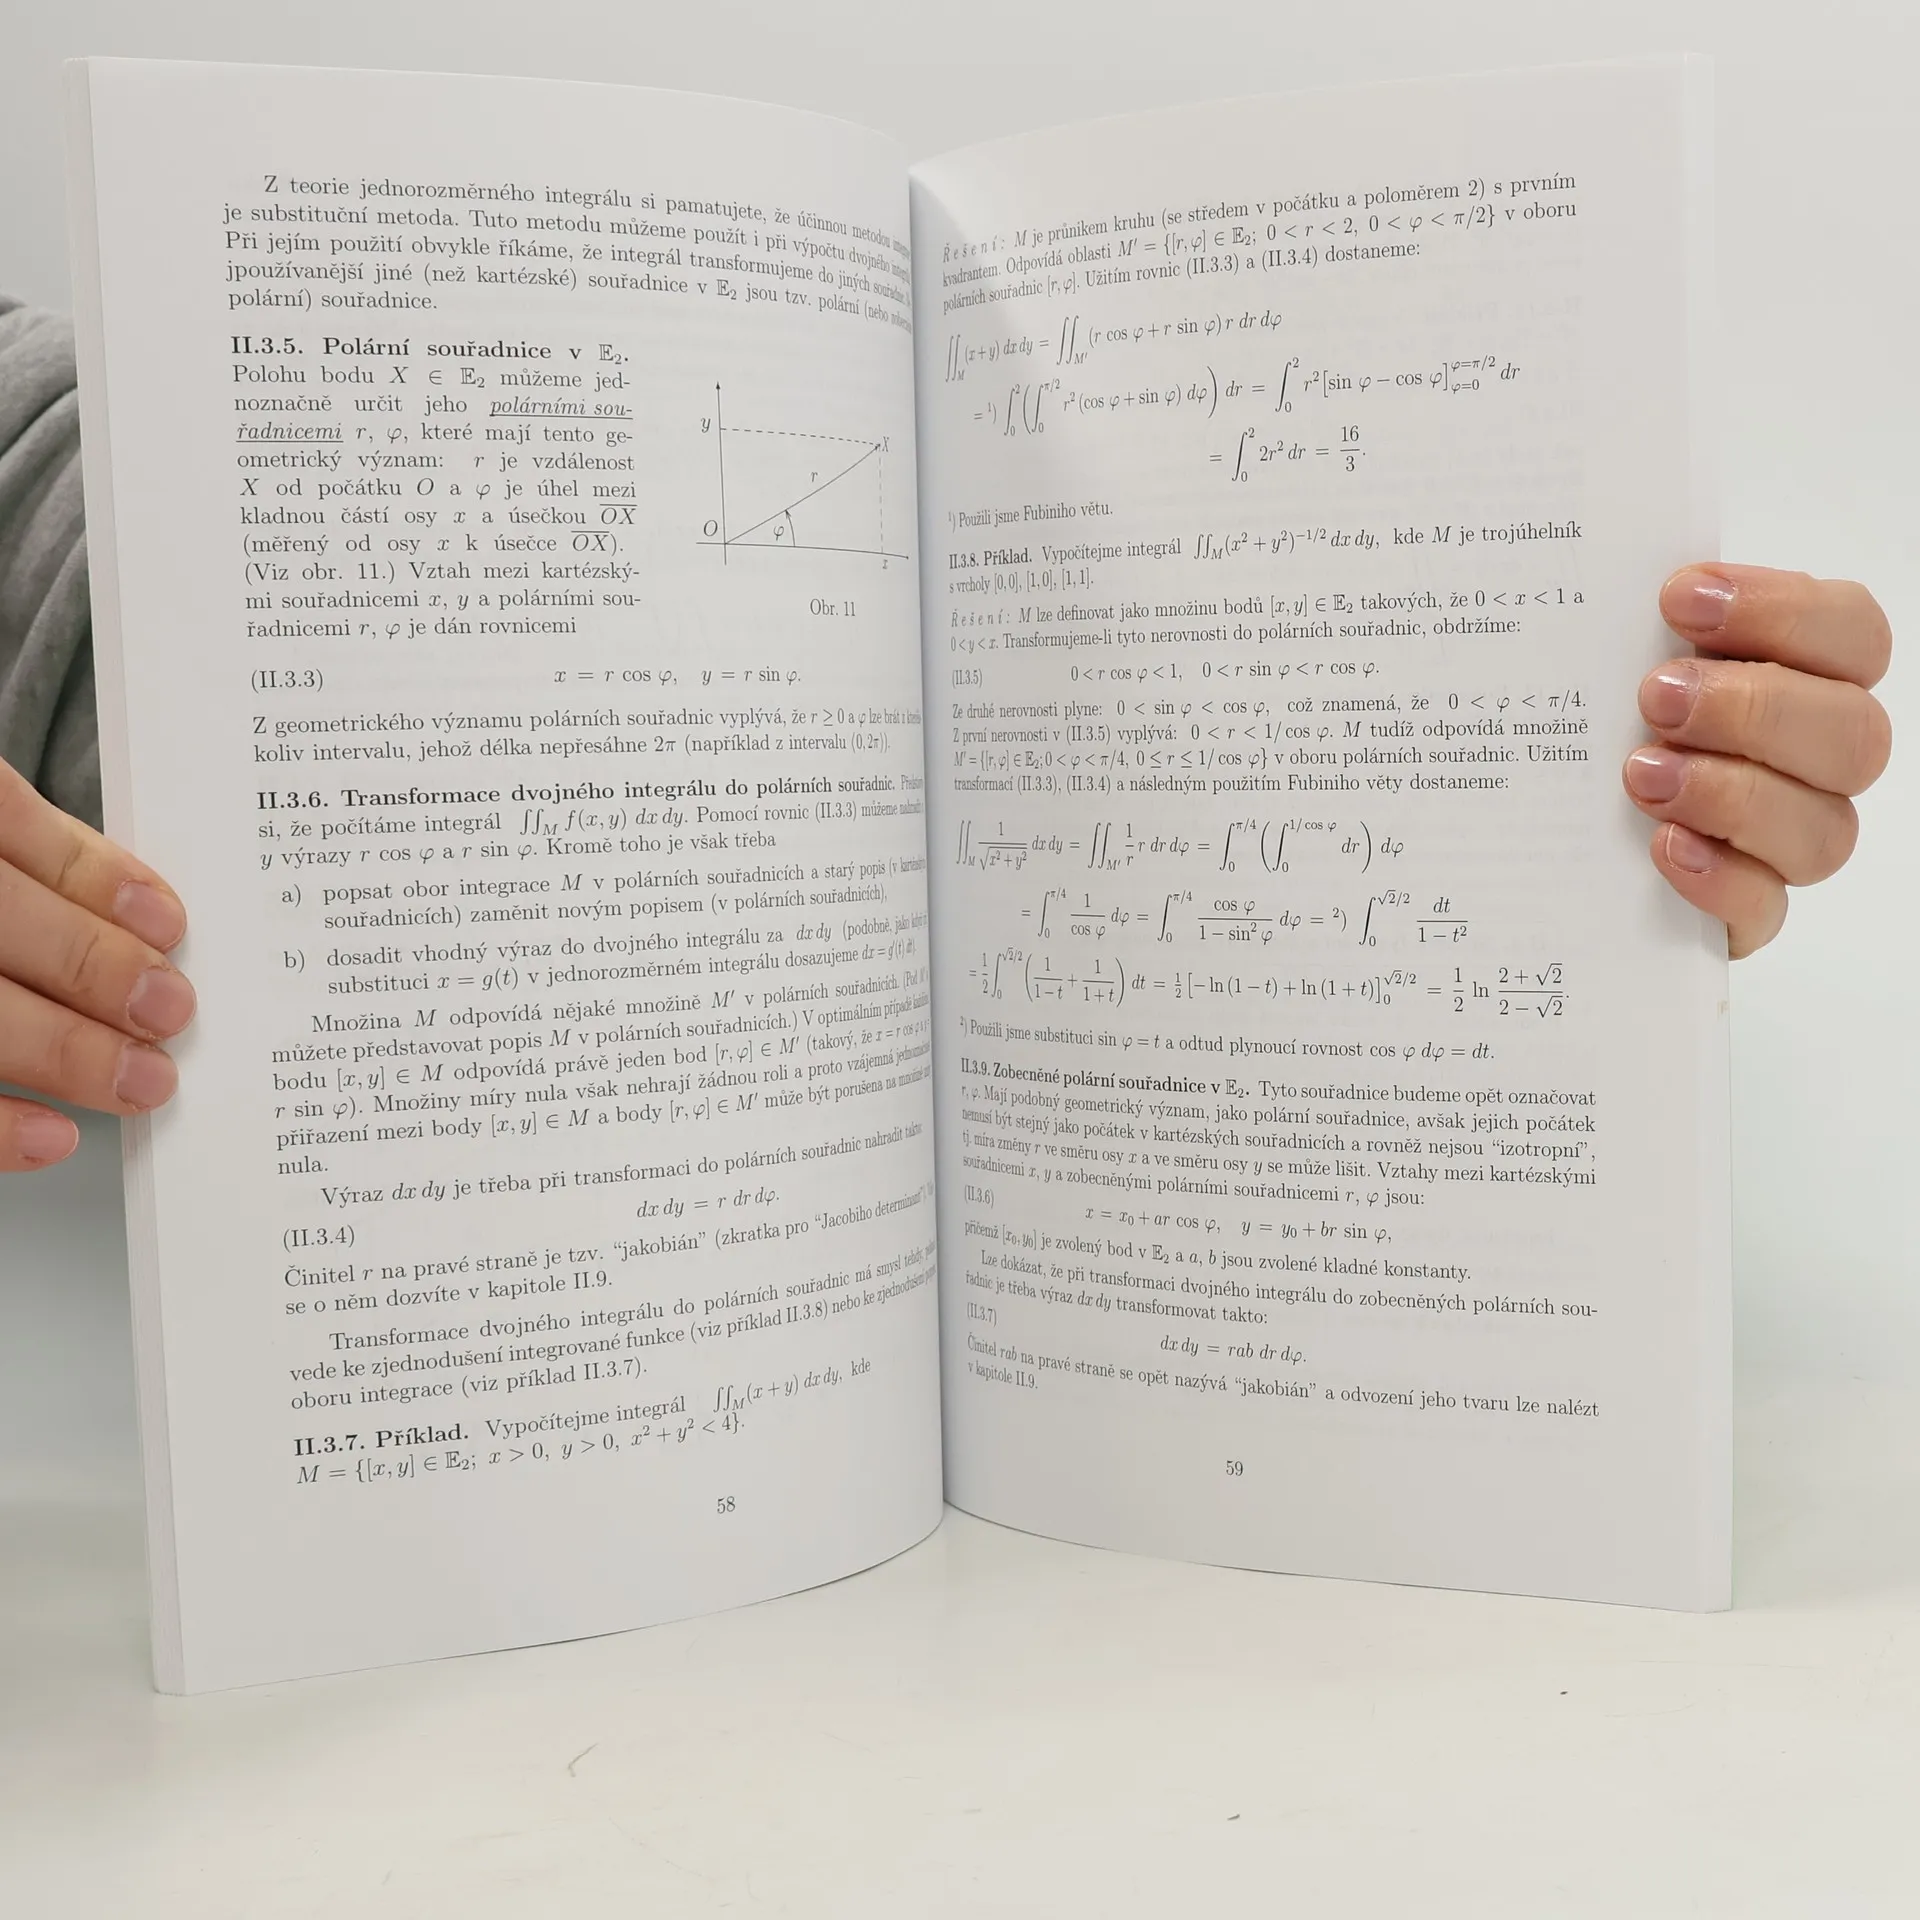 Z teorie jednorozměrného integrálu si pamatujete, že účinnou metodou
je substituční metoda. Tuto metodu můžeme použít i při výpočtu dvojného
Při jejím použití obvykle říkáme, že integrál transformujeme do jiných
jpoužívanější jiné (než kartézské) souřadnice v 𝔼₂ jsou tzv. polární (nebo
polární) souřadnice.
II.3.5. Polární souřadnice v 𝔼₂.
Polohu bodu X ∈ 𝔼₂ můžeme jed-
noznačně určit jeho polárními sou-
řadnicemi r, φ, které mají tento ge-
ometrický význam: r je vzdálenost
X od počátku O a φ je úhel mezi
kladnou částí osy x a úsečkou O̅X̅
(měřený od osy x k úsečce O̅X̅).
(Viz obr. 11.) Vztah mezi kartézský-
mi souřadnicemi x, y a polárními sou-
řadnicemi r, φ je dán rovnicemi
y
X
r
O
φ
x
Obr. 11
(II.3.3) x = r cos φ, y = r sin φ.
Z geometrického významu polárních souřadnic vyplývá, že r ≥ 0 a φ lze brát z
koliv intervalu, jehož délka nepřesáhne 2π (například z intervalu ⟨0, 2π)).
II.3.6. Transformace dvojného integrálu do polárních souřadnic.
si, že počítáme integrál ∬_M f(x, y) dx dy. Pomocí rovnic (II.3.3) můžeme
y výrazy r cos φ a r sin φ. Kromě toho je však třeba
a) popsat obor integrace M v polárních souřadnicích a starý popis (v
souřadnicích) zaměnit novým popisem (v polárních souřadnicích),
b) dosadit vhodný výraz do dvojného integrálu za dx dy (podobně, jako
substituci x = g(t) v jednorozměrném integrálu dosazujeme dx = g′(t) dt).
Množina M odpovídá nějaké množině M′ v polárních souřadnicích. (Pod M′
můžete představovat popis M v polárních souřadnicích.) V optimálním případě
bodu [x, y] ∈ M odpovídá právě jeden bod [r, φ] ∈ M′ (takový, že x = r cos φ
r sin φ). Množiny míry nula však nehrají žádnou roli a proto vzájemná
přiřazení mezi body [x, y] ∈ M a body [r, φ] ∈ M′ může být porušena na množině
nula.
Výraz dx dy je třeba při transformaci do polárních souřadnic nahradit takto:
(II.3.4) dx dy = r dr dφ.
Činitel r na pravé straně je tzv. “jakobián” (zkratka pro “Jacobiho determinant”).
se o něm dozvíte v kapitole II.9.
Transformace dvojného integrálu do polárních souřadnic má smysl tehdy,
vede ke zjednodušení integrované funkce (viz příklad II.3.8) nebo ke zjednodušení
oboru integrace (viz příklad II.3.7).
II.3.7. Příklad. Vypočítejme integrál ∬_M (x + y) dx dy, kde
M = {[x, y] ∈ 𝔼₂; x > 0, y > 0, x² + y² < 4}.
58
Řešení: M je průnikem kruhu (se středem v počátku a poloměrem 2) s prvním
kvadrantem. Odpovídá oblasti M′ = {[r, φ] ∈ 𝔼₂; 0 < r < 2, 0 < φ < π/2} v oboru
polárních souřadnic [r, φ]. Užitím rovnic (II.3.3) a (II.3.4) dostaneme:
∬_M (x + y) dx dy = ∬_M′ (r cos φ + r sin φ) r dr dφ
= ¹) ∫₀² (∫₀^{π/2} r² (cos φ + sin φ) dφ) dr = ∫₀² r² [sin φ − cos φ]_{φ=0}^{φ=π/2} dr
= ∫₀² 2r² dr = 16/3.
¹) Použili jsme Fubiniho větu.
II.3.8. Příklad. Vypočítejme integrál ∬_M (x² + y²)^{−1/2} dx dy, kde M je trojúhelník
s vrcholy [0, 0], [1, 0], [1, 1].
Řešení: M lze definovat jako množinu bodů [x, y] ∈ 𝔼₂ takových, že 0 < x < 1 a
0 < y < x. Transformujeme-li tyto nerovnosti do polárních souřadnic, obdržíme:
(II.3.5) 0 < r cos φ < 1, 0 < r sin φ < r cos φ.
Ze druhé nerovnosti plyne: 0 < sin φ < cos φ, což znamená, že 0 < φ < π/4.
Z první nerovnosti v (II.3.5) vyplývá: 0 < r < 1/cos φ. M tudíž odpovídá množině
M′ = {[r, φ] ∈ 𝔼₂; 0 < φ < π/4, 0 ≤ r ≤ 1/cos φ} v oboru polárních souřadnic. Užitím
transformací (II.3.3), (II.3.4) a následným použitím Fubiniho věty dostaneme:
∬_M 1/√(x² + y²) dx dy = ∬_M′ (1/r) r dr dφ = ∫₀^{π/4} (∫₀^{1/cos φ} dr) dφ
= ∫₀^{π/4} 1/cos φ dφ = ∫₀^{π/4} cos φ/(1 − sin² φ) dφ = ²) ∫₀^{√2/2} dt/(1 − t²)
= 1/2 ∫₀^{√2/2} (1/(1 − t) + 1/(1 + t)) dt = ½ [− ln (1 − t) + ln (1 + t)]₀^{√2/2} = 1/2 ln (2 + √2)/(2 − √2).
²) Použili jsme substituci sin φ = t a odtud plynoucí rovnost cos φ dφ = dt.
II.3.9. Zobecněné polární souřadnice v 𝔼₂. Tyto souřadnice budeme opět označovat
r, φ. Mají podobný geometrický význam, jako polární souřadnice, avšak jejich počátek
nemusí být stejný jako počátek v kartézských souřadnicích a rovněž nejsou “izotropní”,
tj. míra změny r ve směru osy x a ve směru osy y se může lišit. Vztahy mezi kartézskými
souřadnicemi x, y a zobecněnými polárními souřadnicemi r, φ jsou:
(II.3.6) x = x₀ + ar cos φ, y = y₀ + br sin φ,
přičemž [x₀, y₀] je zvolený bod v 𝔼₂ a a, b jsou zvolené kladné konstanty.
Lze dokázat, že při transformaci dvojného integrálu do zobecněných polárních sou-
řadnic je třeba výraz dx dy transformovat takto:
(II.3.7) dx dy = rab dr dφ.
Činitel rab na pravé straně se opět nazývá “jakobián” a odvození jeho tvaru lze nalézt
v kapitole II.9.
59